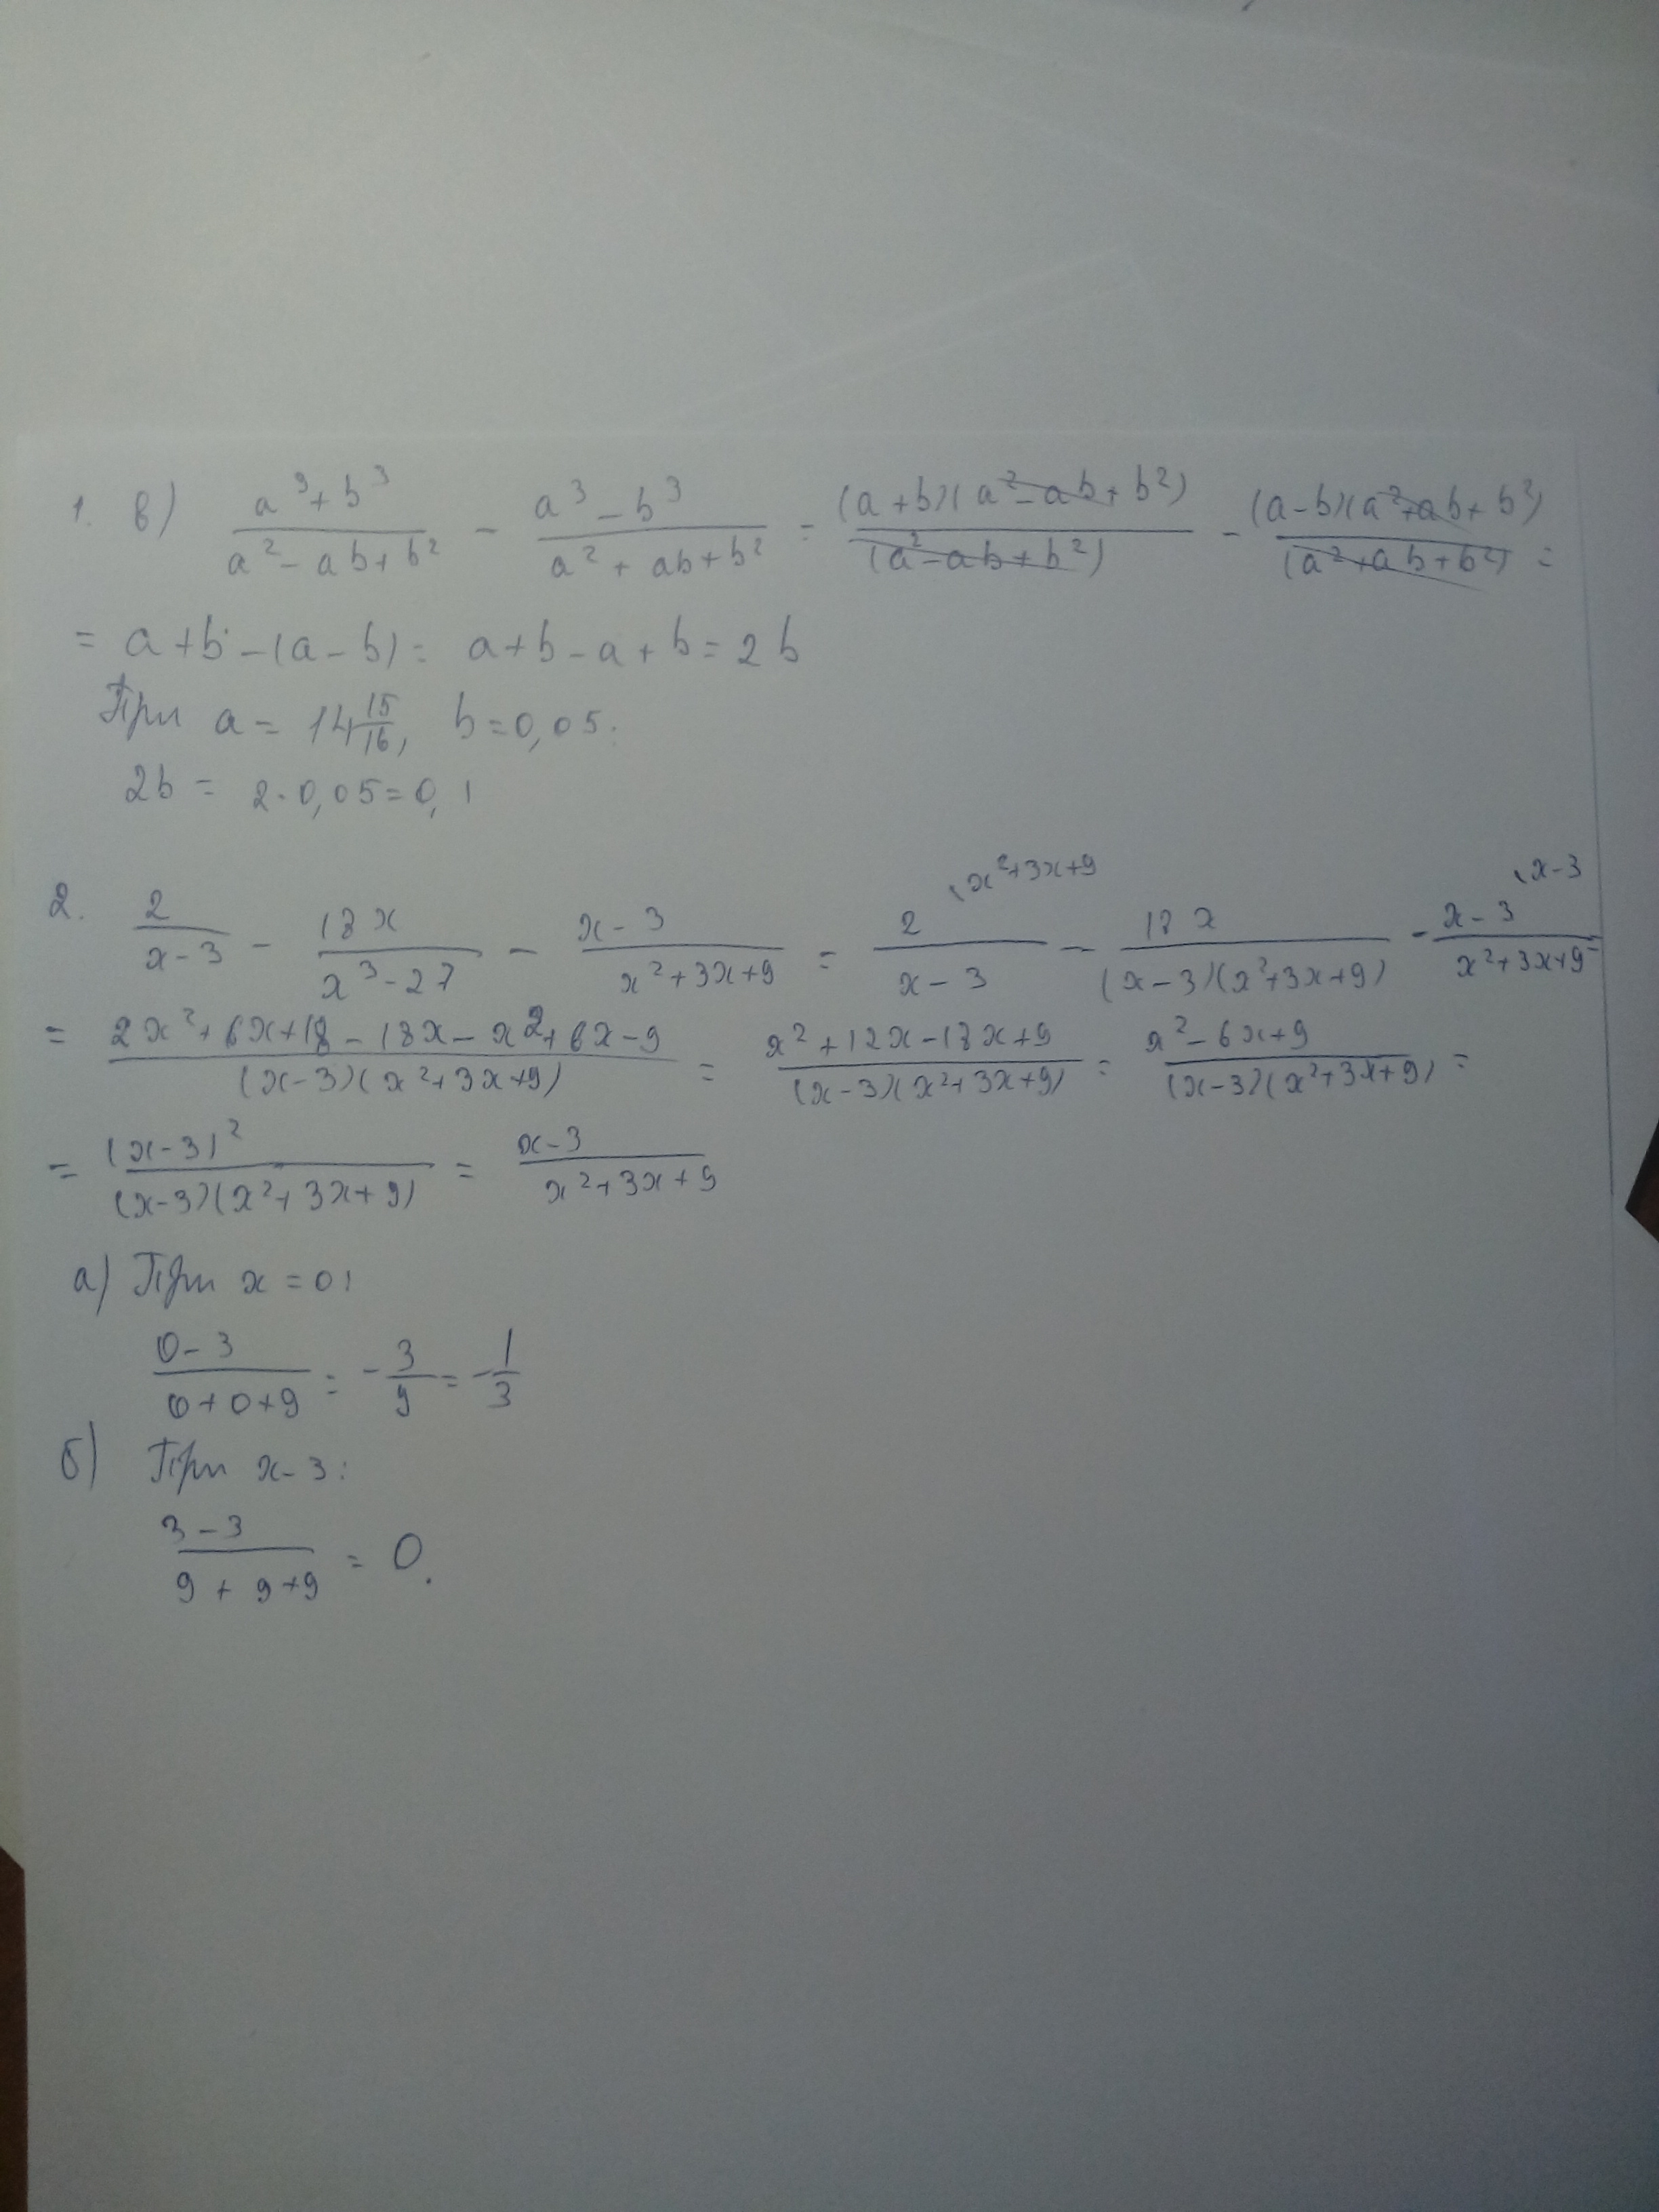 1. в) (a³+b³)/(a²-ab+b²) - (a³-b³)/(a²+ab+b²) = (a+b)(a²-ab+b²)/(a²-ab+b²) - (a-b)(a²+ab+b²)/(a²+ab+b²) =
= a+b-(a-b) = a+b-a+b = 2b
При a = 14 15/16, b = 0,05:
2b = 2·0,05=0,1
2. 2/(x-3) - 18x/(x³-27) - (x-3)/(x²+3x+9) = 2/(x-3) (x²+3x+9 - 18x/((x-3)(x²+3x+9)) - (x-3)/(x²+3x+9) (x-3 =
= (2x²+6x+18-18x-x²+6x-9)/((x-3)(x²+3x+9)) = (x²+12x-18x+9)/((x-3)(x²+3x+9)) = (x²-6x+9)/((x-3)(x²+3x+9)) =
= (x-3)²/((x-3)(x²+3x+9)) = (x-3)/(x²+3x+9)
а) При x = 0:
(0-3)/(0+0+9) = -3/9 = -1/3
б) При x-3:
(3-3)/(9+9+9) = 0.